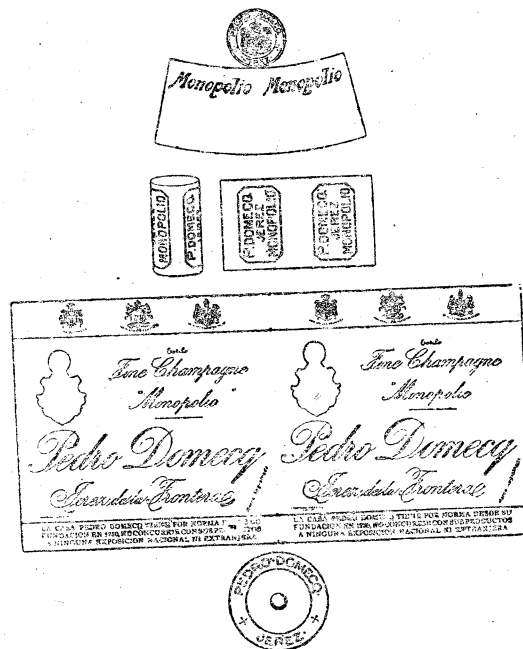 Monopolio Monopolio
MONOPOLIO
P. DOMECQ.
P. DOMECQ.
JEREZ
MONOPOLIO
P. DOMECQ.
JEREZ
MONOPOLIO
Fine Champagne
"Monopolio"
Pedro Domecq
Jerez de la Frontera
LA CASA PEDRO DOMECQ TIENE POR NORMA
FUNDACION EN 1730, NO CONCURRIR CON SUS PE
A NINGUNA EXPOSICION NACIONAL NI EXTRANJERA
Fine Champagne
"Monopolio"
Pedro Domecq
Jerez de la Frontera
LA CASA PEDRO DOMECQ TIENE POR NORMA DESDE SU
FUNDACION EN 1730, NO CONCURRIR CON SUS PRODUCTOS
A NINGUNA EXPOSICION NACIONAL NI EXTRANJERA
PEDRO DOMECQ
JEREZ